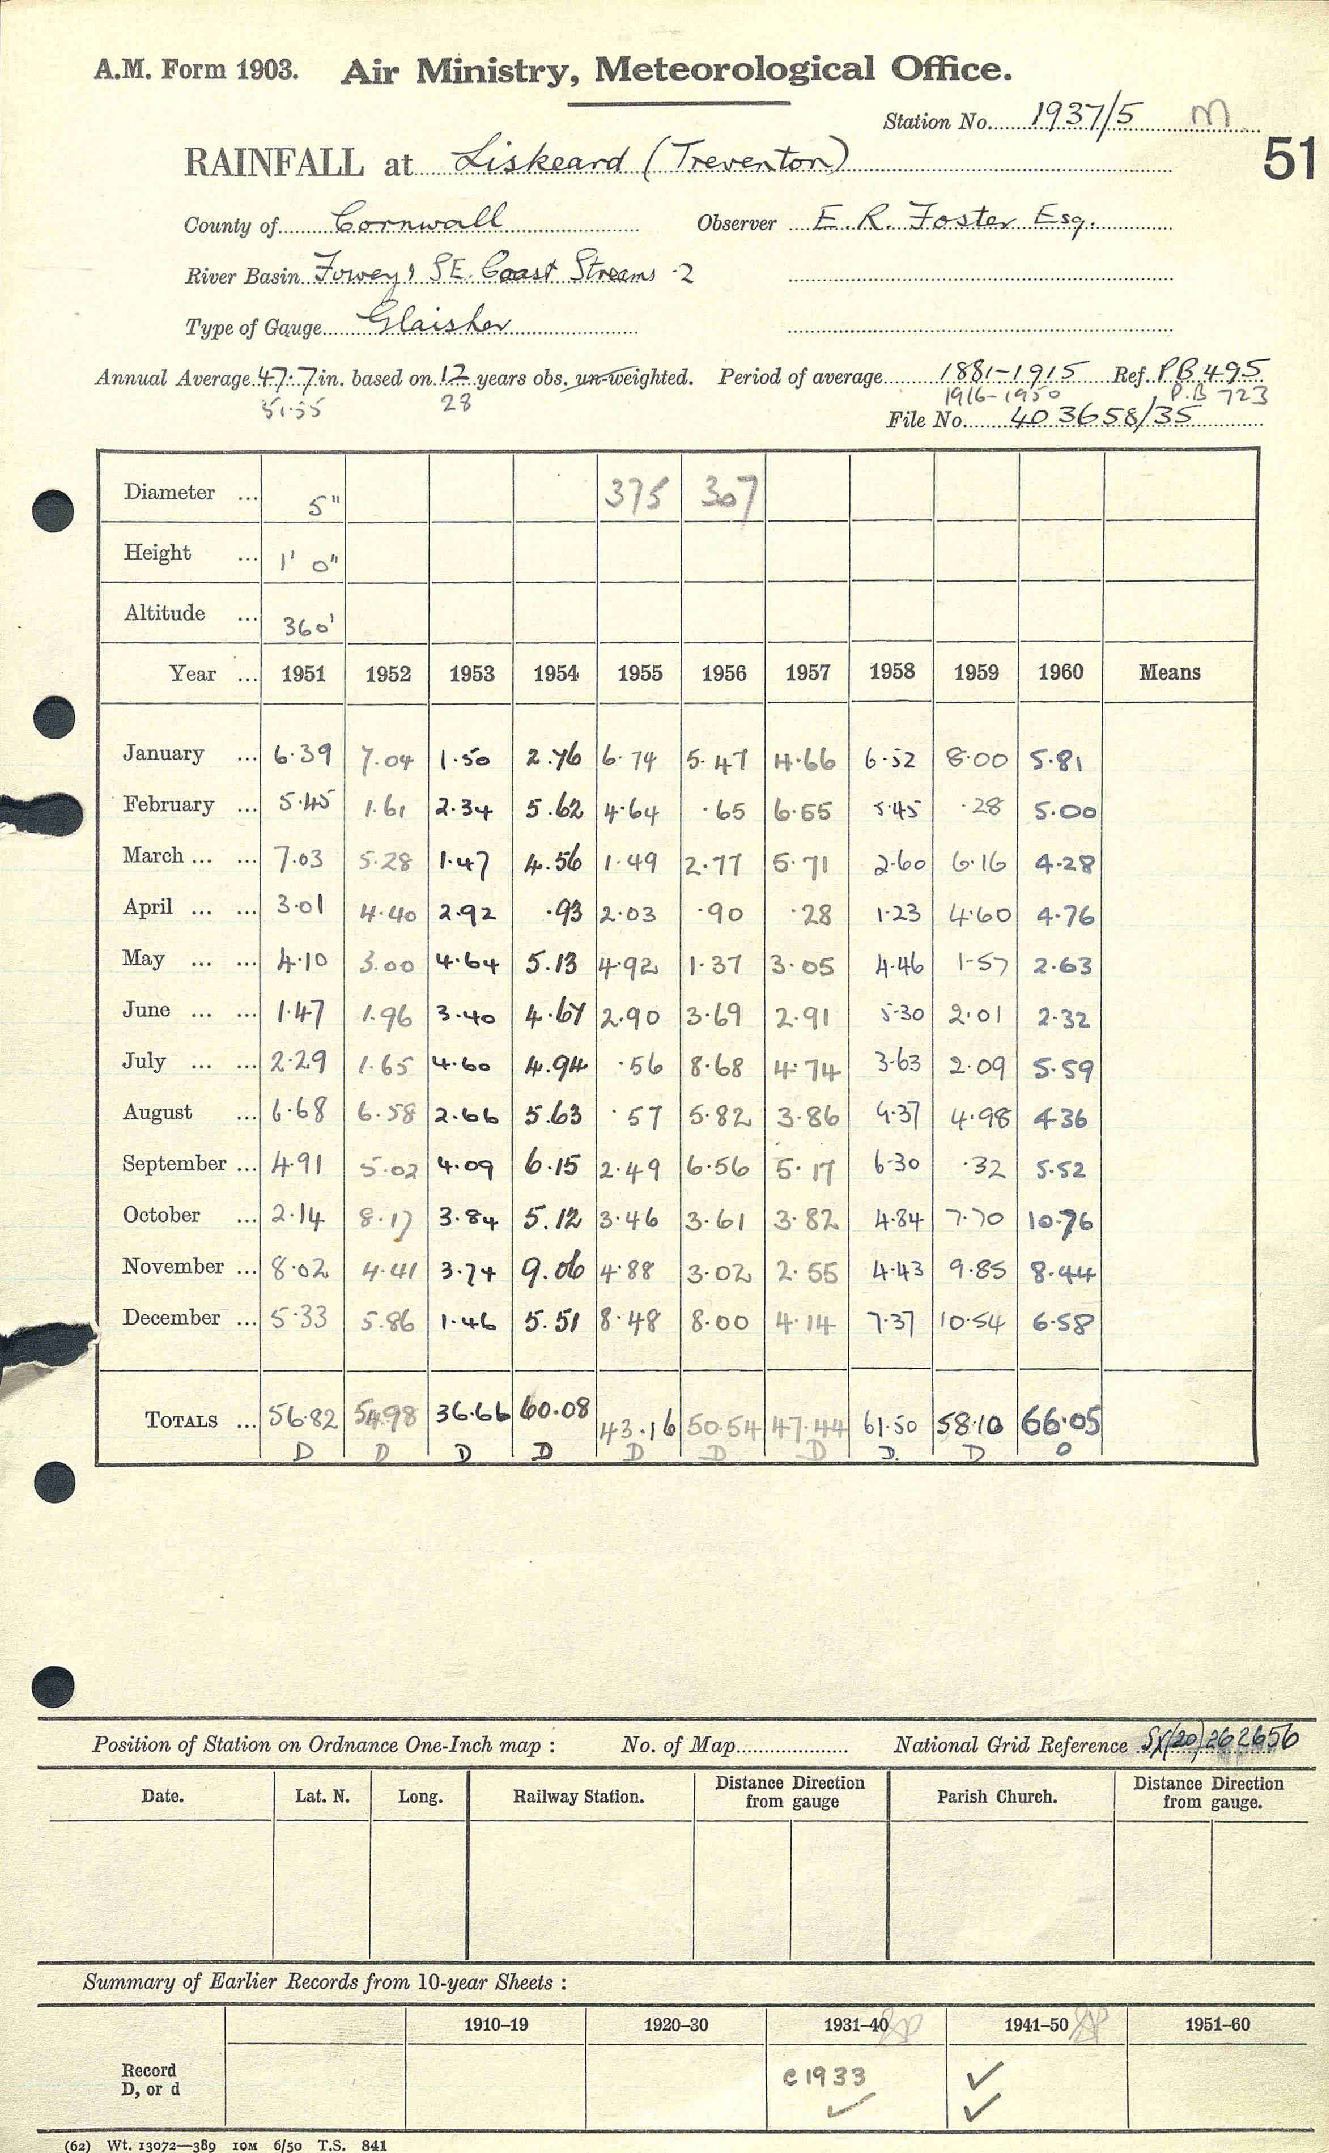 A.M. Form 1903. Air Ministry, Meteorological Office.
Station No. 1937/5 M
51
RAINFALL at Liskeard (Treventon)
County of Cornwall Observer E. R. Foster Esq.
River Basin Fowey & SE. Coast Streams -2
Type of Gauge Glaisher
Annual Average 47.7 in. based on 12 years obs. un-weighted. Period of average 1881-1915 Ref. PB 495
51.55 28 1916-1950 P.B 723
File No. 403658/35
Diameter ... 5" 375 307
Height ... 1' 0"
Altitude ... 360'
Year ... 1951 1952 1953 1954 1955 1956 1957 1958 1959 1960 Means
January ... 6.39 7.04 1.50 2.76 6.74 5.47 4.66 6.52 8.00 5.81
February ... 5.45 1.61 2.34 5.62 4.64 .65 6.55 5.45 .28 5.00
March ... ... 7.03 5.28 1.47 4.56 1.49 2.77 5.71 2.60 6.16 4.28
April ... ... 3.01 4.40 2.92 .93 2.03 .90 .28 1.23 4.60 4.76
May ... ... 4.10 3.00 4.64 5.13 4.92 1.37 3.05 4.46 1.57 2.63
June ... ... 1.47 1.96 3.40 4.67 2.90 3.69 2.91 5.30 2.01 2.32
July ... ... 2.29 1.65 4.60 4.94 .56 8.68 4.74 3.63 2.09 5.59
August ... 6.68 6.58 2.66 5.63 .57 5.82 3.86 9.37 4.98 4.36
September ... 4.91 5.02 4.09 6.15 2.49 6.56 5.17 6.30 .32 5.52
October ... 2.14 8.17 3.84 5.12 3.46 3.61 3.82 4.84 7.70 10.76
November ... 8.02 4.41 3.74 9.06 4.88 3.02 2.55 4.43 9.85 8.44
December ... 5.33 5.86 1.46 5.51 8.48 8.00 4.14 7.37 10.54 6.58
TOTALS ... 56.82 54.98 36.66 60.08 43.16 50.54 47.44 61.50 58.10 66.05
D D D D D D D D. D D
Position of Station on Ordnance One-Inch map : No. of Map National Grid Reference SX(20)262656
Date. Lat. N. Long. Railway Station. Distance Direction from gauge Parish Church. Distance Direction from gauge.
Summary of Earlier Records from 10-year Sheets :
1910–19 1920–30 1931–40 1941–50 1951–60
Record D, or d C1933 ✓ ✓
✓
(62) Wt. 13072—389 10M 6/50 T.S. 841